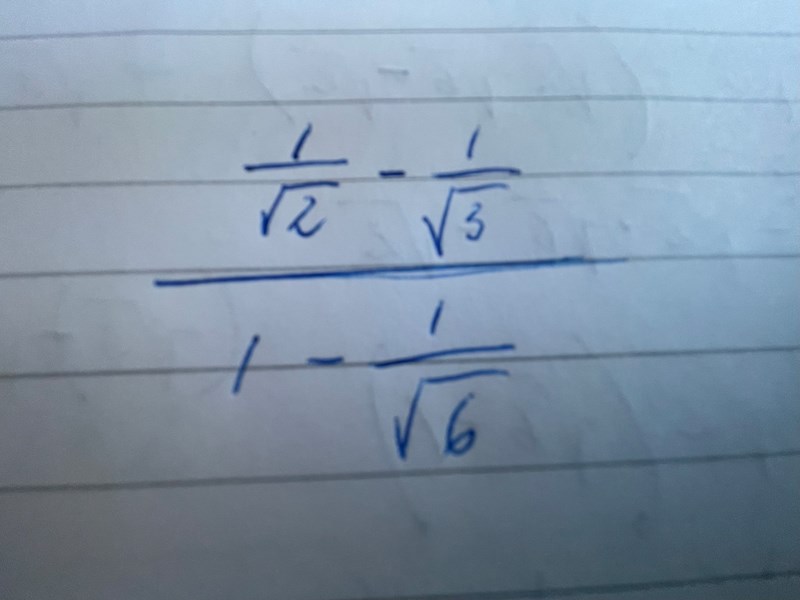 1/√2 - 1/√3
1 - 1/√6